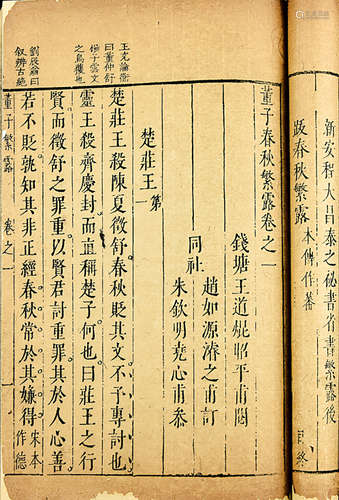 新安程大昌泰之秘書省書繁露後
跋春秋繁露本傳作蕃
董子春秋繁露卷之一
錢塘王道焜昭平甫閱
趙如源濬之甫訂
同社
朱欽明堯心甫叅
楚莊王第一
楚莊王殺陳夏徵舒春秋貶其文不予專討也
靈王殺齊慶封而直稱楚子何也曰莊王之行
賢而徵舒之罪重以賢君討重罪其於人心善
若不貶孰知其非正經春秋常於其嫌得朱本作德
王充論衡
曰董仲舒
揚子雲文
之烏穫也
劉辰翁曰
叙辨古絶
董子繁露 卷之一